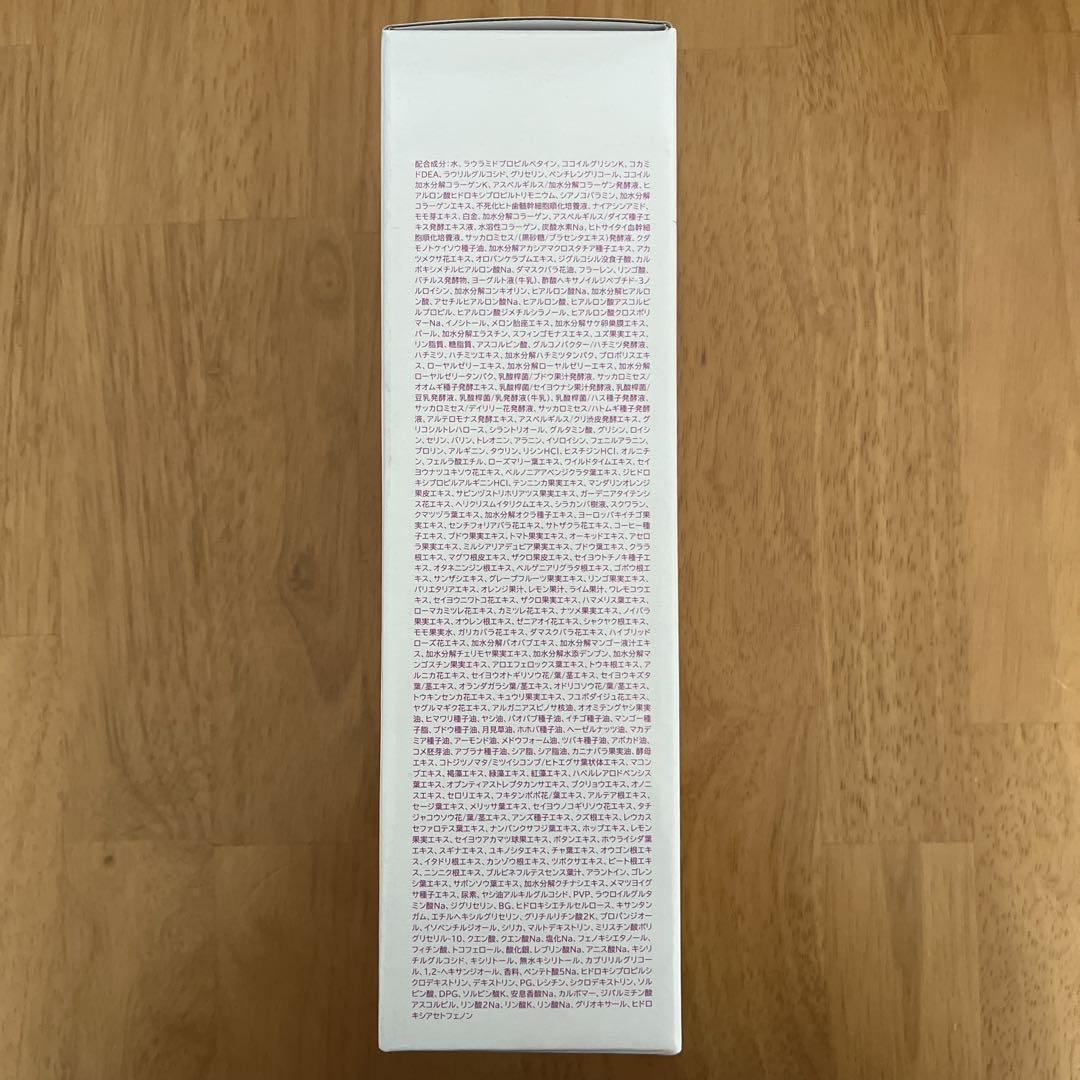 配合成分：水、ラウラミドプロピルベタイン、ココイルグリシンK、コカミ
ドDEA、ラウリルグルコシド、グリセリン、ペンチレングリコール、ココイル
加水分解コラーゲンK、アスペルギルス/加水分解コラーゲン発酵液、ヒ
アルロン酸ヒドロキシプロピルトリモニウム、シアノコバラミン、加水分解
コラーゲンエキス、不死化ヒト歯髄幹細胞順化培養液、ナイアシンアミド、
モモ芽エキス、白金、加水分解コラーゲン、アスペルギルス/ダイズ種子エ
キス発酵エキス液、水溶性コラーゲン、炭酸水素Na、ヒトサイタイ血幹細
胞順化培養液、サッカロミセス/(黒砂糖/プラセンタエキス)発酵液、クダ
モノトケイソウ種子油、加水分解アカシアマクロスタチア種子エキス、アカ
ツメクサ花エキス、オロバンケラプムエキス、ジグルコシル没食子酸、カル
ボキシメチルヒアルロン酸Na、ダマスクバラ花油、フラーレン、リンゴ酸、
バチルス発酵物、ヨーグルト液(牛乳)、酢酸ヘキサノイルジペプチド-3ノ
ルロイシン、加水分解コンキオリン、ヒアルロン酸Na、加水分解ヒアルロ
ン酸、アセチルヒアルロン酸Na、ヒアルロン酸、ヒアルロン酸アスコルビ
ルプロピル、ヒアルロン酸ジメチルシラノール、ヒアルロン酸クロスポリ
マーNa、イノシトール、メロン胎座エキス、加水分解サケ卵巣膜エキス、
パール、加水分解エラスチン、スフィンゴモナスエキス、ユズ果実エキス、
リン脂質、糖脂質、アスコルビン酸、グルコノバクター/ハチミツ発酵液、
ハチミツ、ハチミツエキス、加水分解ハチミツタンパク、プロポリスエキ
ス、ローヤルゼリーエキス、加水分解ローヤルゼリーエキス、加水分解
ローヤルゼリータンパク、乳酸桿菌/ブドウ果汁発酵液、サッカロミセス/
オオムギ種子発酵エキス、乳酸桿菌/セイヨウナシ果汁発酵液、乳酸桿菌/
豆乳発酵液、乳酸桿菌/乳発酵液(牛乳)、乳酸桿菌/ハス種子発酵液、
サッカロミセス/デイリリー花発酵液、サッカロミセス/ハトムギ種子発酵
液、アルテロモナス発酵エキス、アスペルギルス/クリ渋皮発酵エキス、グ
リコシルトレハロース、シラントリオール、グルタミン酸、グリシン、ロイシ
ン、セリン、バリン、トレオニン、アラニン、イソロイシン、フェニルアラニン、
プロリン、アルギニン、タウリン、リシンHCl、ヒスチジンHCl、オルニチ
ン、フェルラ酸エチル、ローズマリー葉エキス、ワイルドタイムエキス、セイ
ヨウナツユキソウ花エキス、ベルノニアアペンジクラタ葉エキス、ジヒドロ
キシプロピルアルギニンHCl、テンニンカ果実エキス、マンダリンオレンジ
果皮エキス、サピンヅストリホリアツス果実エキス、ガーデニアタイテンシ
ス花エキス、ヘリクリスムイタリクムエキス、シラカンバ樹液、スクワラン、
クマツヅラ葉エキス、加水分解オクラ種子エキス、ヨーロッパキイチゴ果
実エキス、センチフォリアバラ花エキス、サトザクラ花エキス、コーヒー種
子エキス、ブドウ果実エキス、トマト果実エキス、オーキッドエキス、アセロ
ラ果実エキス、ミルシアリアデュビア果実エキス、ブドウ葉エキス、クララ
根エキス、マグワ根皮エキス、ザクロ果皮エキス、セイヨウトチノキ種子エ
キス、オタネニンジン根エキス、ベルゲニアリグラタ根エキス、ゴボウ根エ
キス、サンザシエキス、グレープフルーツ果実エキス、リンゴ果実エキス、
パリエタリアエキス、オレンジ果汁、レモン果汁、ライム果汁、ワレモコウエ
キス、セイヨウニワトコ花エキス、ザクロ果実エキス、ハマメリス葉エキス、
ローマカミツレ花エキス、カミツレ花エキス、ナツメ果実エキス、ノイバラ
果実エキス、オウレン根エキス、ゼニアオイ花エキス、シャクヤク根エキス、
モモ果実水、ガリカバラ花エキス、ダマスクバラ花エキス、ハイブリッド
ローズ花エキス、加水分解バオバブエキス、加水分解マンゴー液汁エキ
ス、加水分解チェリモヤ果実エキス、加水分解水添デンプン、加水分解マ
ンゴスチン果実エキス、アロエフェロックス葉エキス、トウキ根エキス、ア
ルニカ花エキス、セイヨウオトギリソウ花/葉/茎エキス、セイヨウキズタ
葉/茎エキス、オランダガラシ葉/茎エキス、オドリコソウ花/葉/茎エキス、
トウキンセンカ花エキス、キュウリ果実エキス、フユボダイジュ花エキス、
ヤグルマギク花エキス、アルガニアスピノサ核油、オオミテングヤシ果実
油、ヒマワリ種子油、ヤシ油、バオバブ種子油、イチゴ種子油、マンゴー種
子脂、ブドウ種子油、月見草油、ホホバ種子油、ヘーゼルナッツ油、マカデ
ミア種子油、アーモンド油、メドウフォーム油、ツバキ種子油、アボカド油、
コメ胚芽油、アブラナ種子油、シア脂、シア脂油、カニナバラ果実油、酵母
エキス、コトジツノマタ/ミツイシコンブ/ヒトエグサ葉状体エキス、マコン
ブエキス、褐藻エキス、緑藻エキス、紅藻エキス、ハベルレアロドペンシス
葉エキス、オプンティアストレプタカンサエキス、ブクリョウエキス、オノニ
スエキス、セロリエキス、フキタンポポ花/葉エキス、アルテア根エキス、
セージ葉エキス、メリッサ葉エキス、セイヨウノコギリソウ花エキス、タチ
ジャコウソウ花/葉/茎エキス、アンズ種子エキス、クズ根エキス、レウカス
セファロテス葉エキス、ナンバンクサフジ葉エキス、ホップエキス、レモン
果実エキス、セイヨウアカマツ球果エキス、ボタンエキス、ホウライシダ葉
エキス、スギナエキス、ユキノシタエキス、チャ葉エキス、オウゴン根エキ
ス、イタドリ根エキス、カンゾウ根エキス、ツボクサエキス、ビート根エキ
ス、ニンニク根エキス、ブルビネフルテスセンス葉汁、アラントイン、ゴレン
シ葉エキス、サボンソウ葉エキス、加水分解クチナシエキス、メマツヨイグ
サ種子エキス、尿素、ヤシ油アルキルグルコシド、PVP、ラウロイルグルタ
ミン酸Na、ジグリセリン、BG、ヒドロキシエチルセルロース、キサンタン
ガム、エチルヘキシルグリセリン、グリチルリチン酸2K、プロパンジオー
ル、イソペンチルジオール、シリカ、マルトデキストリン、ミリスチン酸ポリ
グリセリル-10、クエン酸、クエン酸Na、塩化Na、フェノキシエタノール、
フィチン酸、トコフェロール、酸化銀、レブリン酸Na、アニス酸Na、キシリ
チルグルコシド、キシリトール、無水キシリトール、カプリリルグリコー
ル、1,2-ヘキサンジオール、香料、ペンテト酸5Na、ヒドロキシプロピルシ
クロデキストリン、デキストリン、PG、レシチン、シクロデキストリン、ソル
ビン酸、DPG、ソルビン酸K、安息香酸Na、カルボマー、ジパルミチン酸
アスコルビル、リン酸2Na、リン酸K、リン酸Na、グリオキサール、ヒドロ
キシアセトフェノン